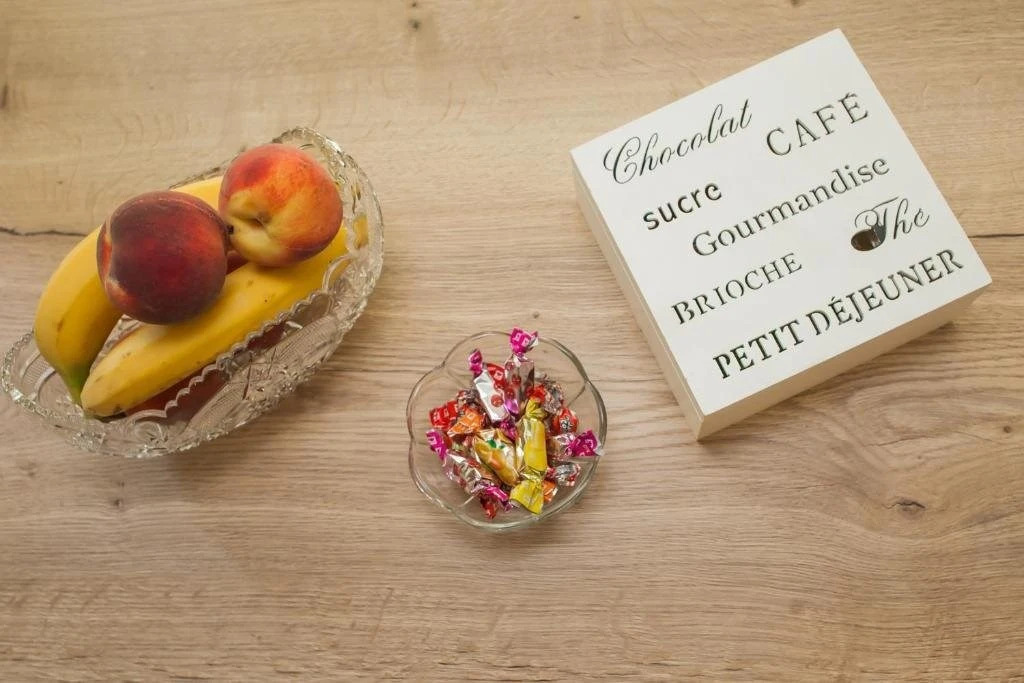 Chocolat
CAFÉ
sucre
Gourmandise
BRIOCHE
Thé
PETIT DÉJEUNER